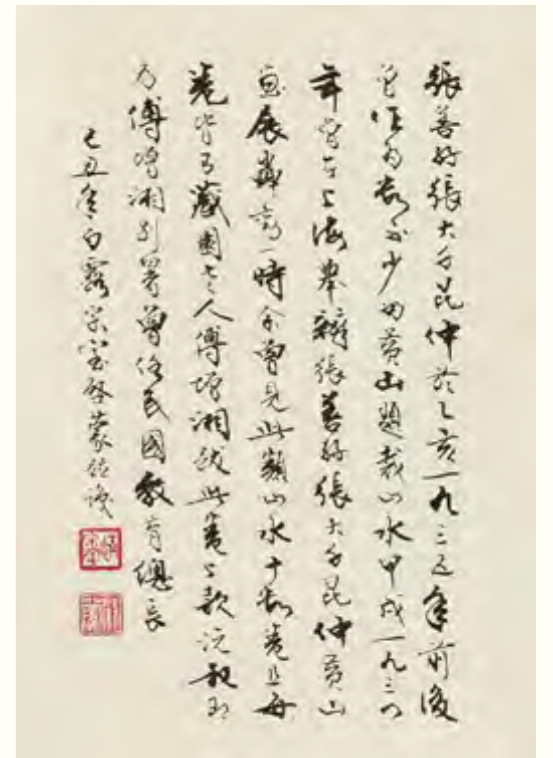 張善孖張大千昆仲於乙亥一九三五年前後
曾作為數不少的黃山題裁山水甲戌一九三四
年曾在上海舉辦張善孖張大千昆仲黃山
畫展轟動一時余曾見此類山水十數卷且每
卷皆有藏園老人傅增湘跋此卷上款沅叔即
為傅增湘別署曾任民國教育總長
己丑年白露榮寶齋蒙